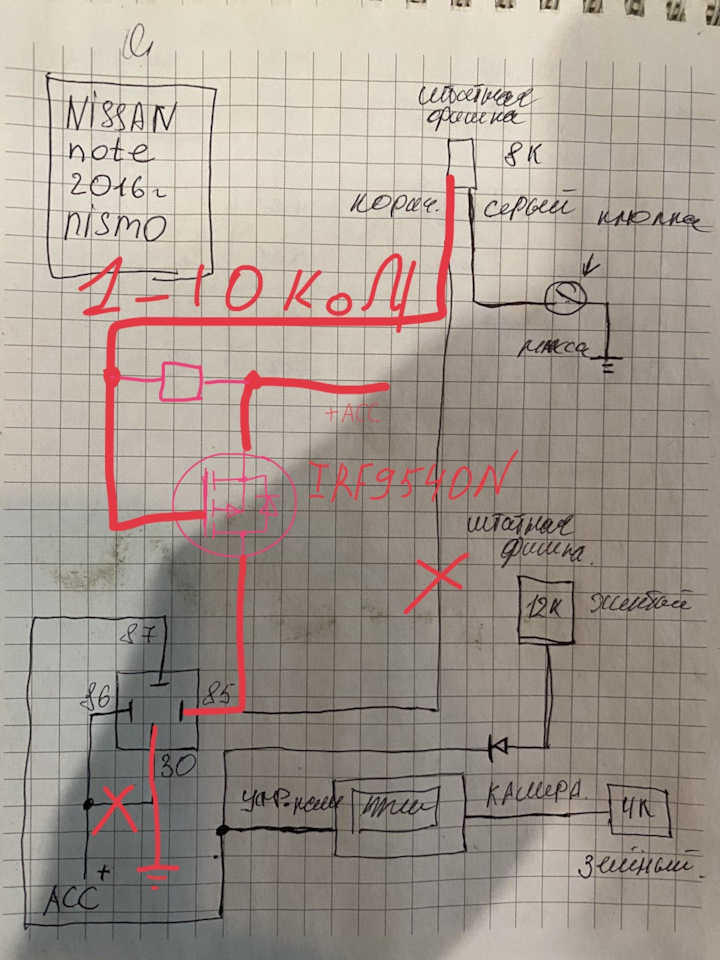 NISSAN
note
2016г
nismo
штатная
фишка
8К
корич.
серый
кнопка
масса
1-10 кОМ
+ACC
IRF9540N
штатная
фишка.
12К
желтый
87
86
85
30
камера.
4К
зелёный.
+
ACC